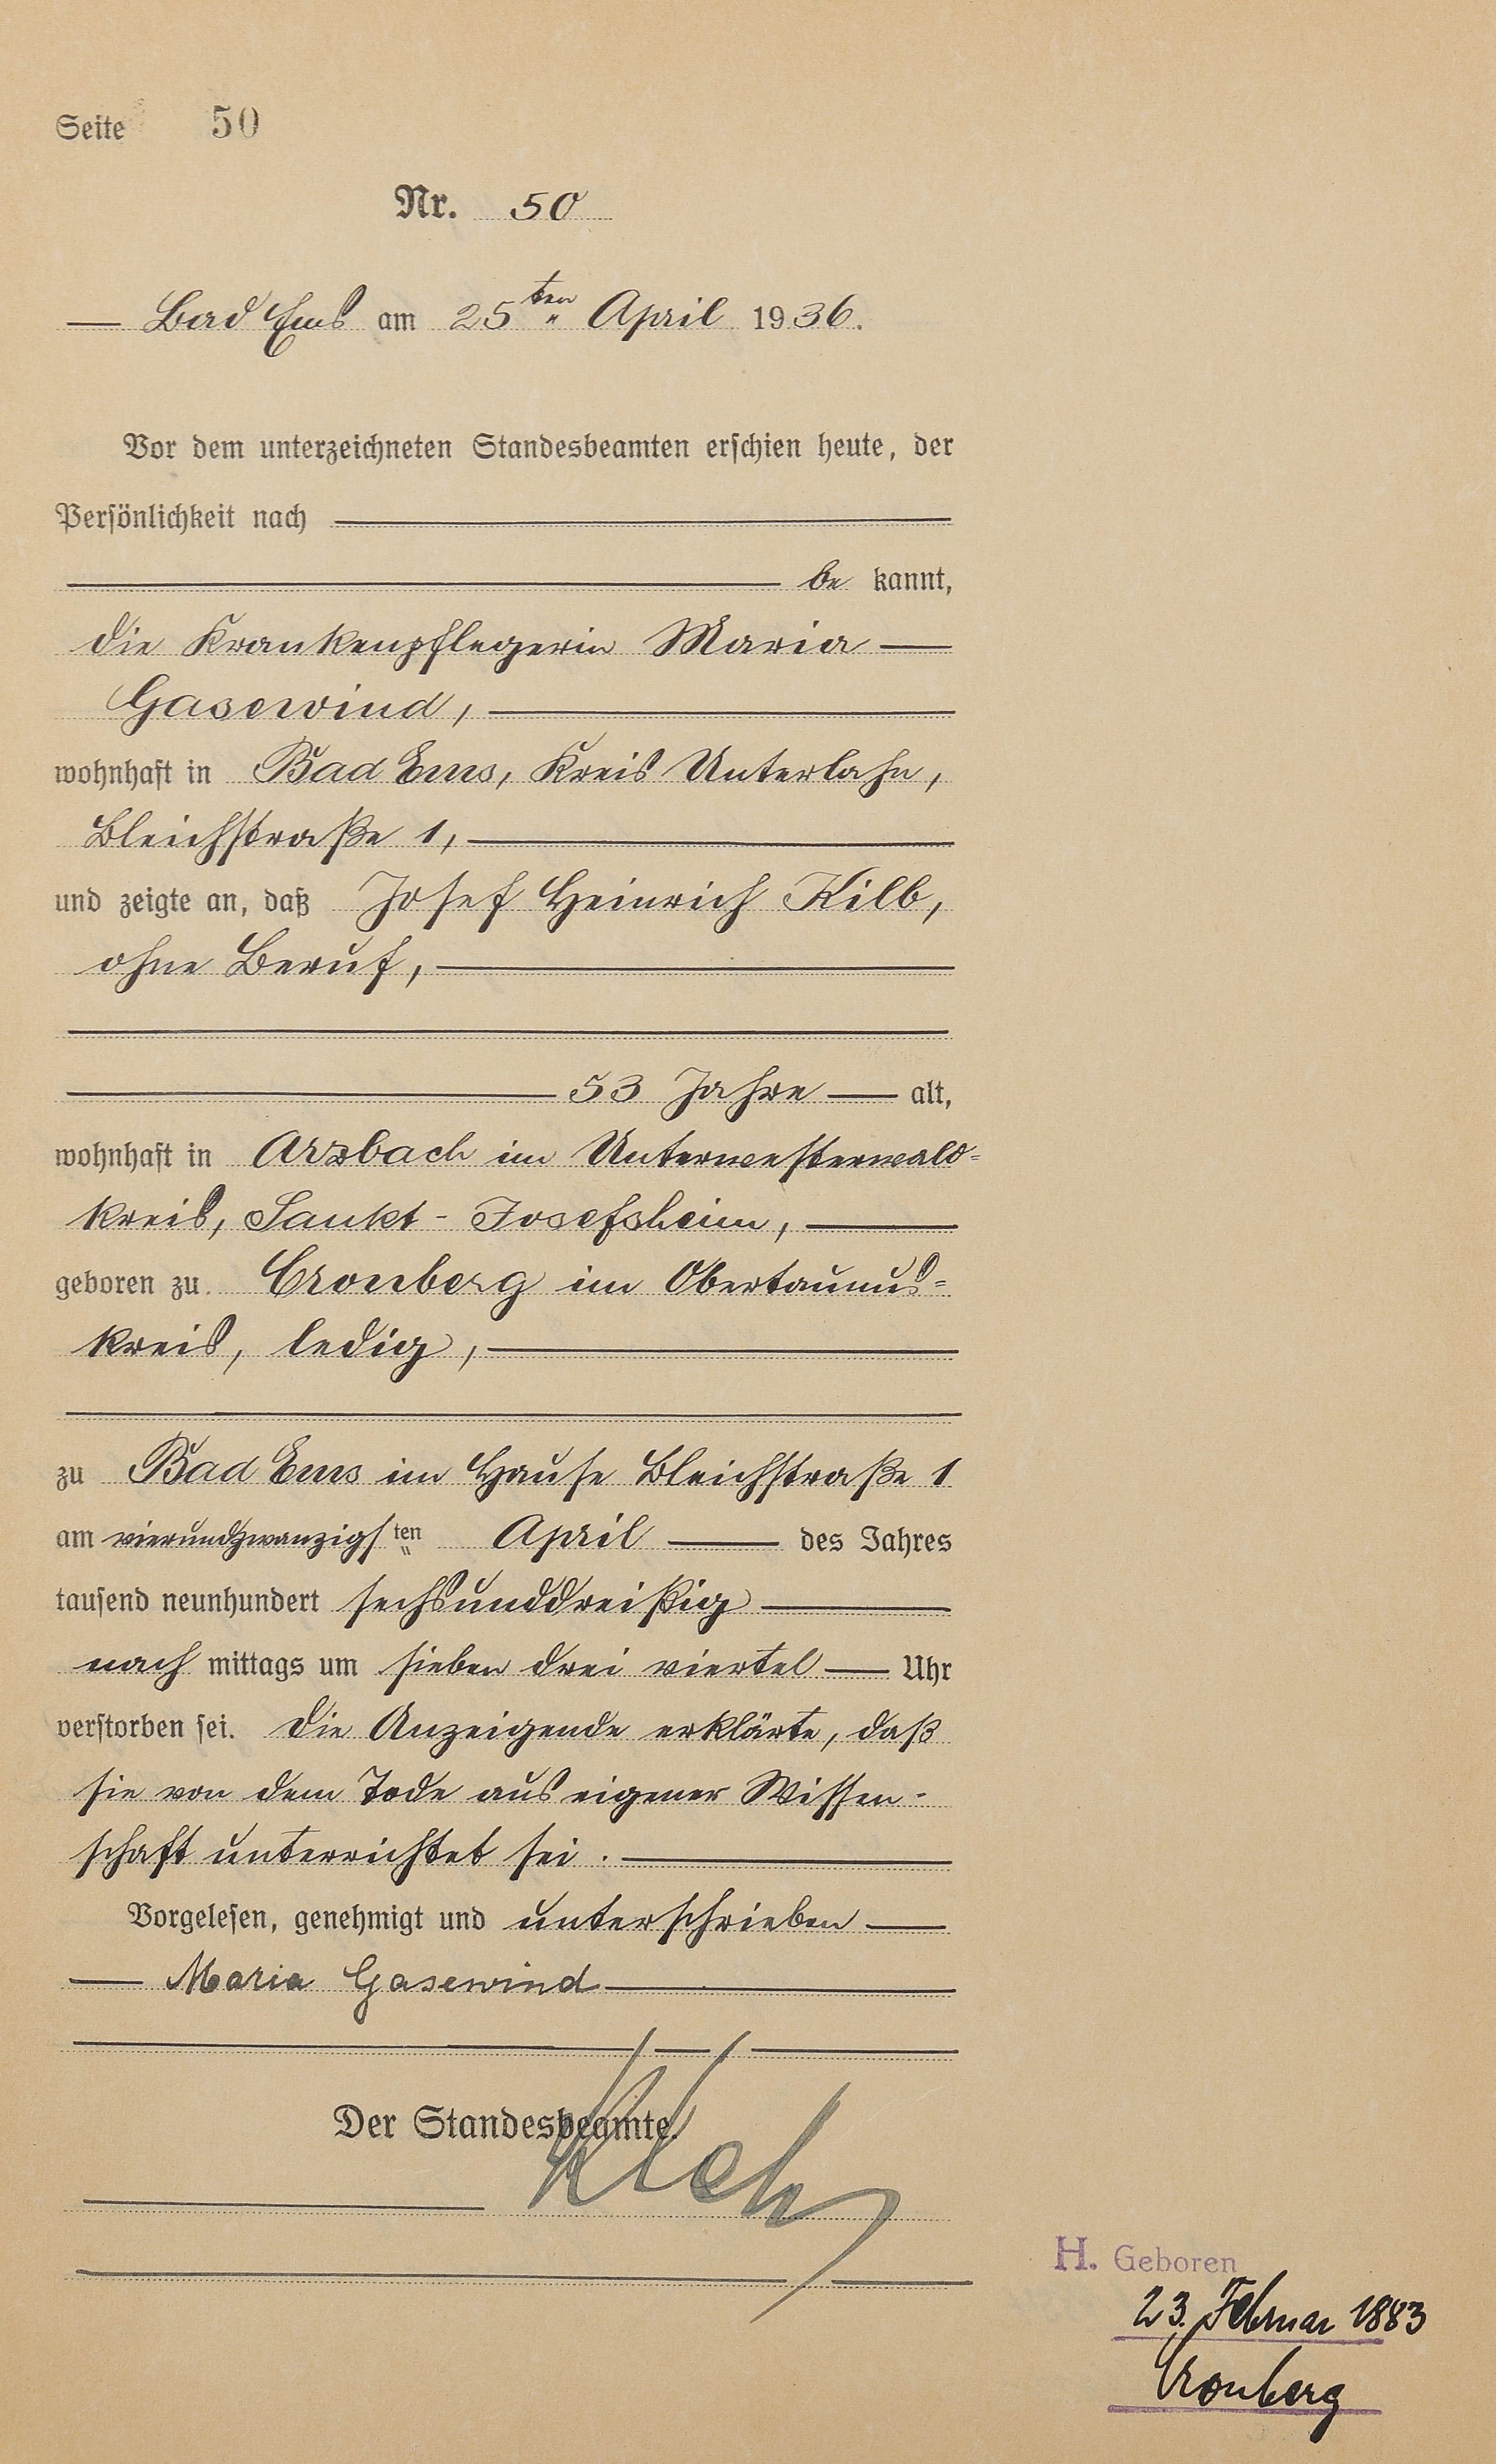 Seite 50
Nr. 50
Bad Ems am 25ten April 1936.
Vor dem unterzeichneten Standesbeamten erschien heute, der
Persönlichkeit nach
be kannt,
die Krankenpflegerin Maria
Gasewind,
wohnhaft in Bad Ems, Kreis Unterlahn,
Bleichstraße 1,
und zeigte an, daß Josef Heinrich Kilb,
ohne Beruf,
53 Jahre alt,
wohnhaft in Arzbach im Unterwesterwald-
kreis, Sankt-Josefsheim,
geboren zu Cronberg im Obertaunus-
kreis, ledig,
zu Bad Ems im Hause Bleichstraße 1
am vierundzwanzigsten April des Jahres
tausend neunhundert sechsunddreißig
nach mittags um sieben drei viertel Uhr
verstorben sei. Die Anzeigende erklärte, daß
sie von dem Tode aus eigener Wissen-
schaft unterrichtet sei.
Vorgelesen, genehmigt und unterschrieben
Maria Gasewind
Der Standesbeamte.
H. Geboren
23. Februar 1883
Cronberg